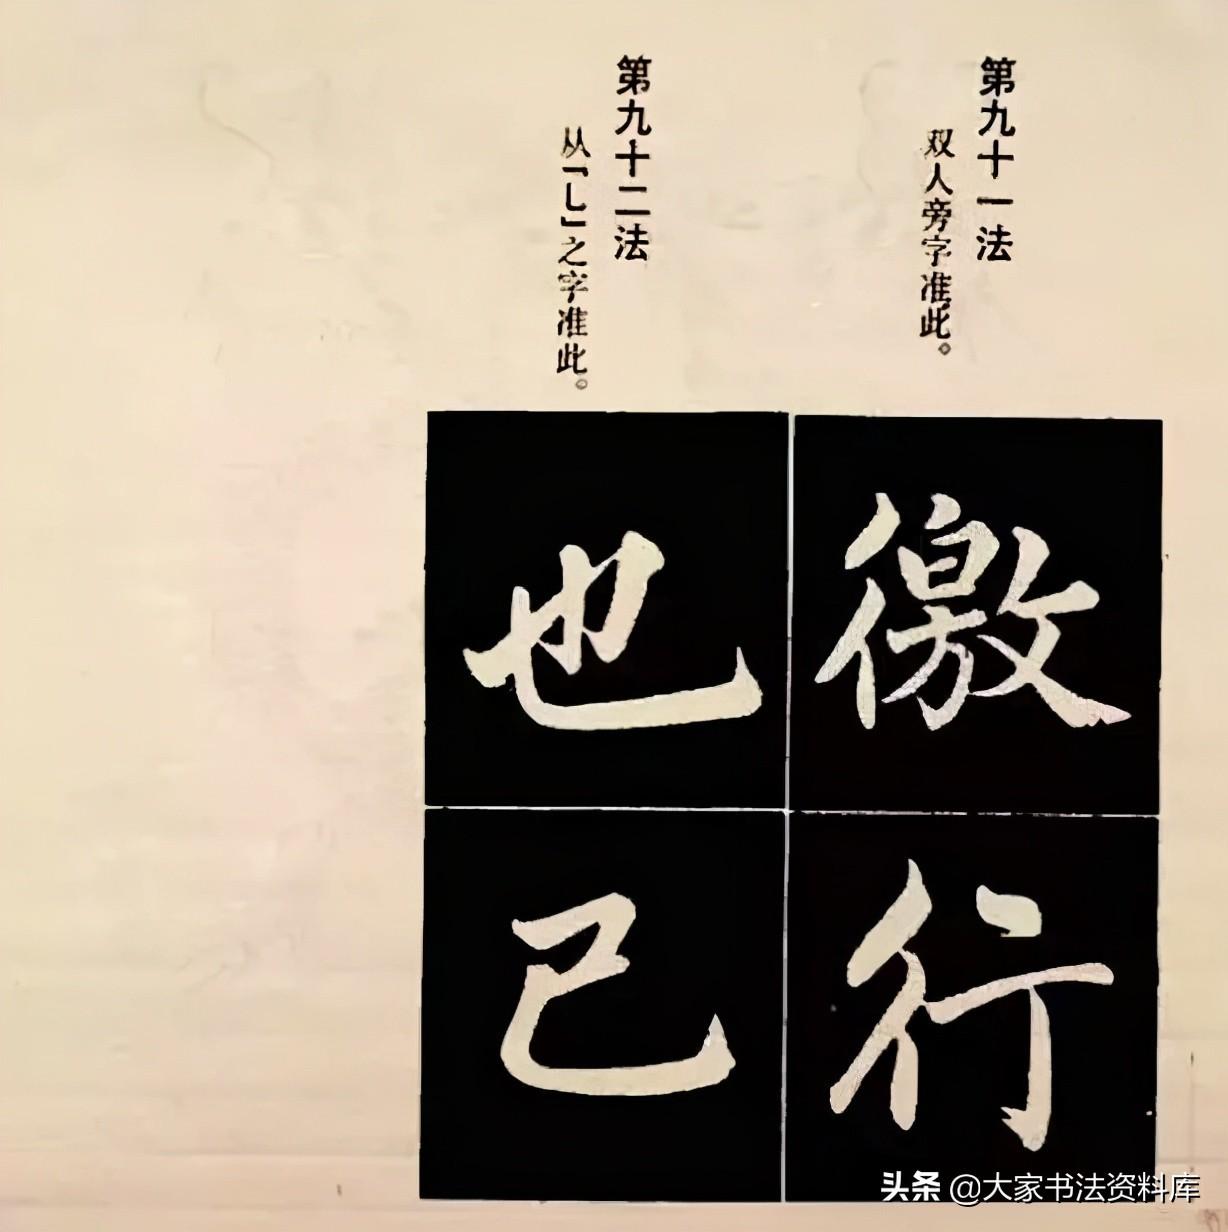 第九十一法
双人旁字准此。
徼
行
第九十二法
从「乚」之字准此。
也
已
头条 @大家书法资料库